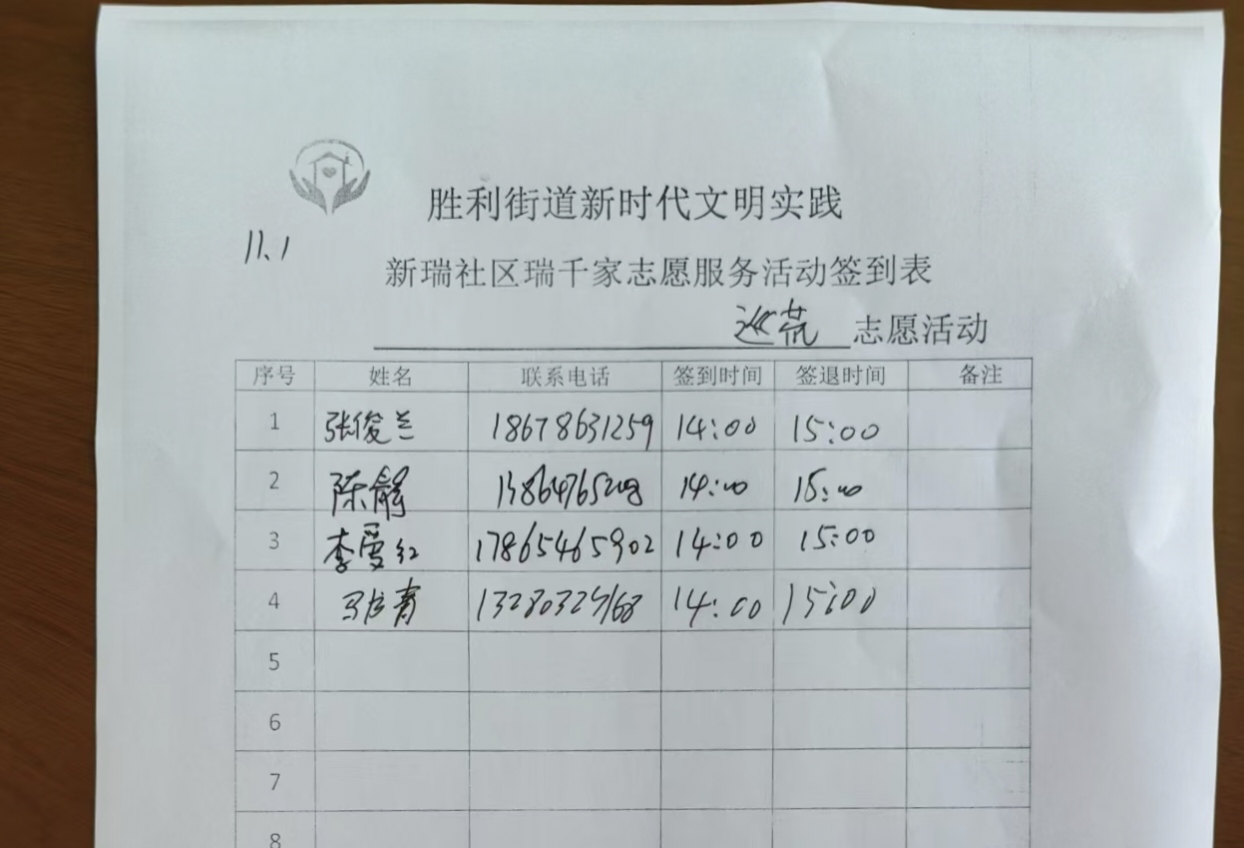 胜利街道新时代文明实践
11、1
新瑞社区瑞千家志愿服务活动签到表
巡荒 志愿活动
序号 姓名 联系电话 签到时间 签退时间 备注
1 张俊兰 18678631259 14:00 15:00
2 陈静 14:00 15:00
3 李爱红 17865465902 14:00 15:00
4 14:00 15:00
5
6
7
8